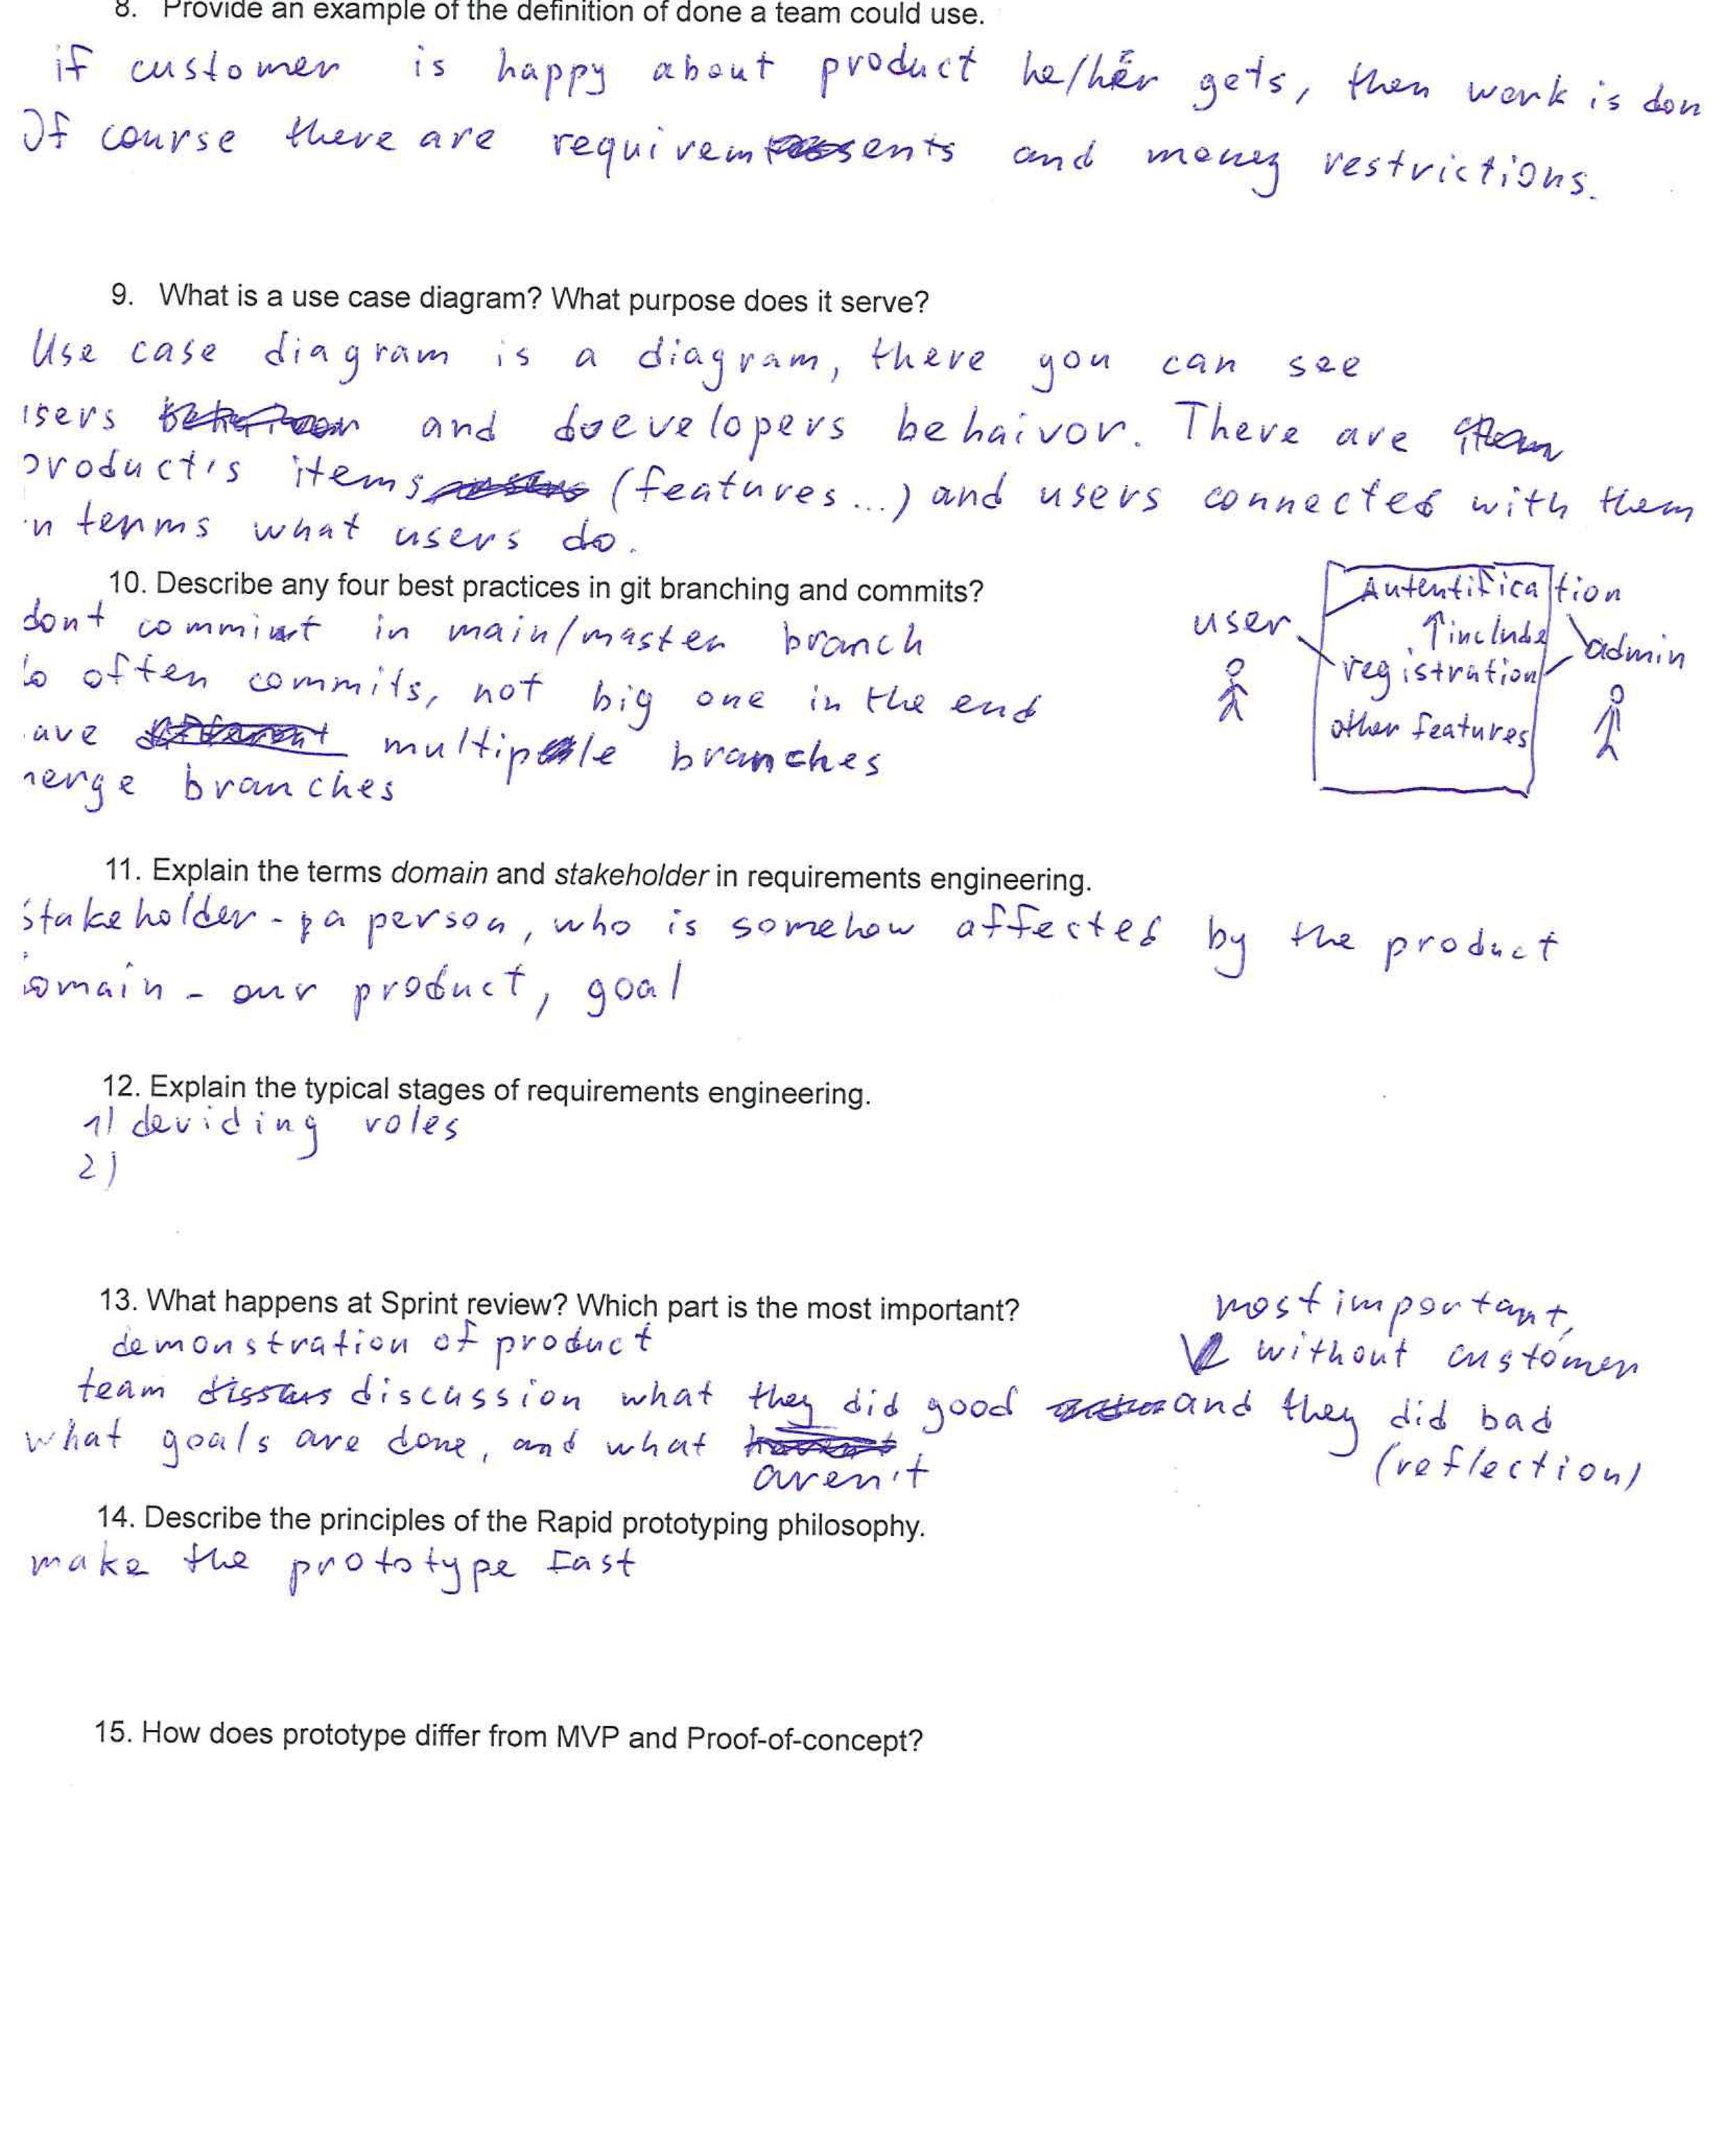 8. Provide an example of the definition of done a team could use.
if customer is happy about product he/her gets, then work is don
Of course there are requirements and money restrictions.
9. What is a use case diagram? What purpose does it serve?
Use case diagram is a diagram, there you can see
sers and developers behaivor. There are
product's items (features...) and users connected with them
n terms what users do.
10. Describe any four best practices in git branching and commits?
dont commit in main/master branch
o often commits, not big one in the end
ave multiple branches
merge branches
user
Autentification
↑include
registration
other features
admin
11. Explain the terms domain and stakeholder in requirements engineering.
stakeholder - a person, who is somehow affected by the product
omain - our product, goal
12. Explain the typical stages of requirements engineering.
1) deviding roles
2)
13. What happens at Sprint review? Which part is the most important?
demonstration of product
most important,
without customer
team discussion what they did good and they did bad
(reflection)
what goals are done, and what aren't
14. Describe the principles of the Rapid prototyping philosophy.
make the prototype fast
15. How does prototype differ from MVP and Proof-of-concept?